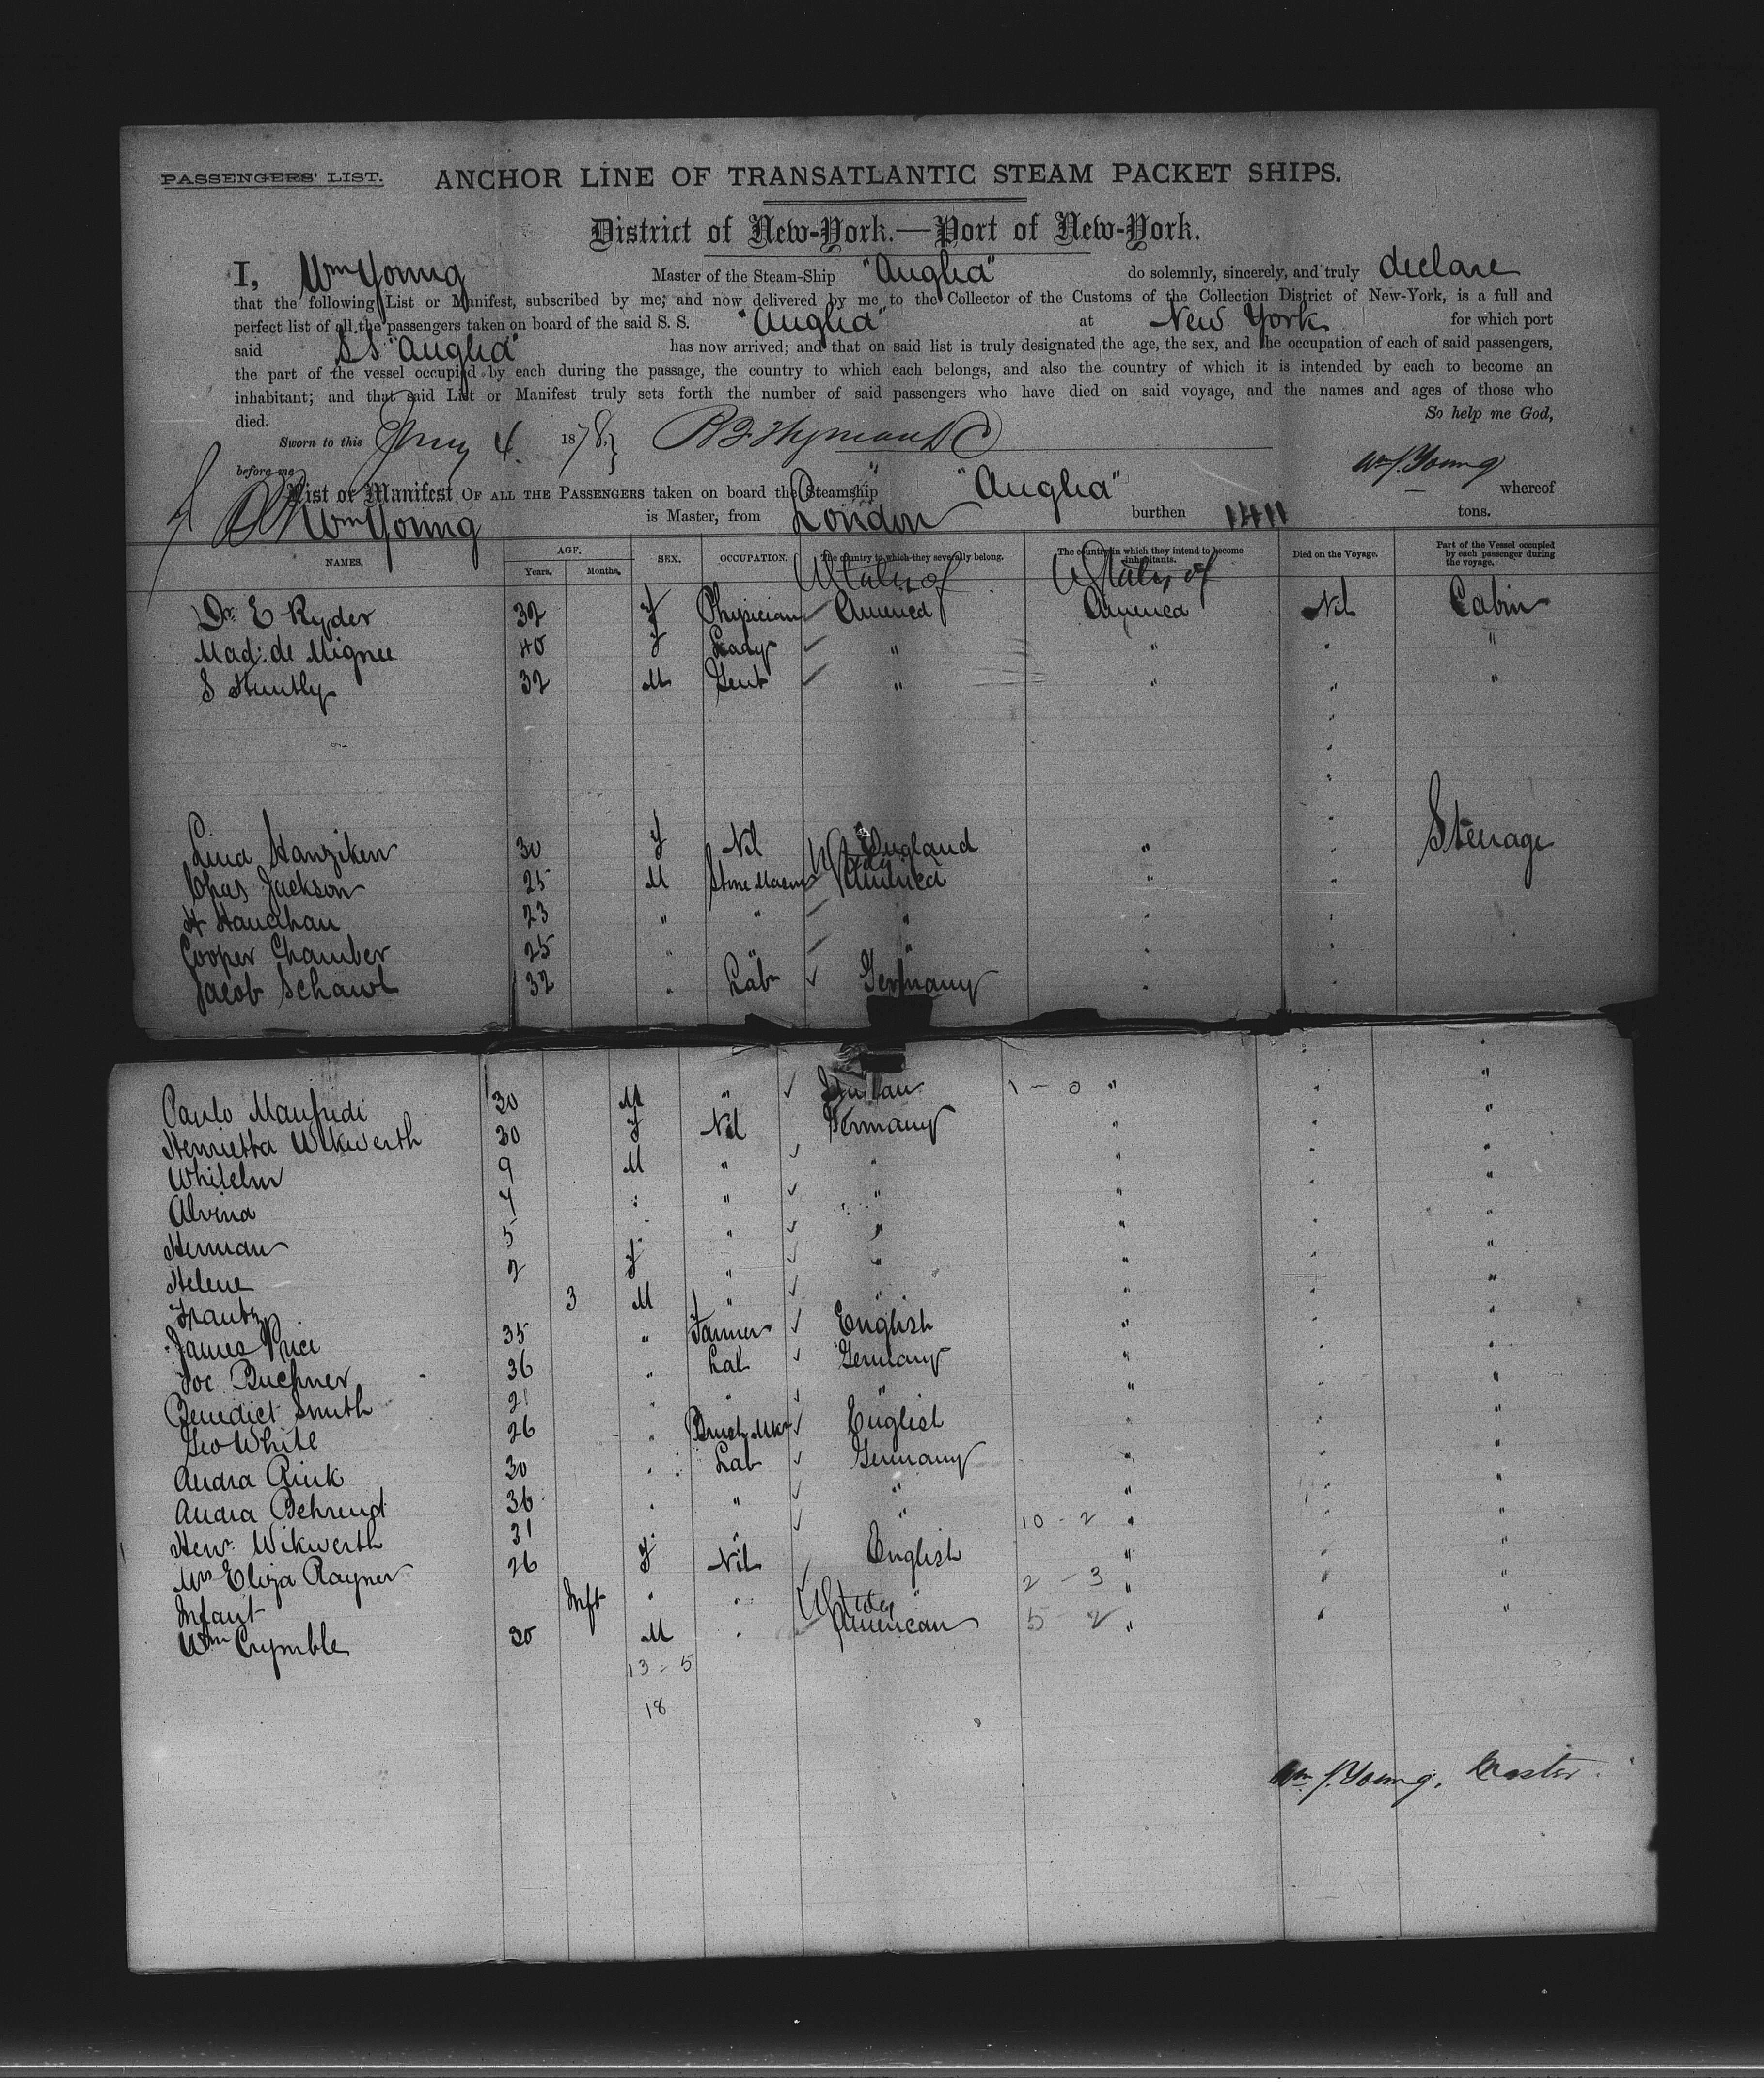 PASSENGERS' LIST.
ANCHOR LINE OF TRANSATLANTIC STEAM PACKET SHIPS.
District of New-York.—Port of New-York.
I, Wm Young Master of the Steam-Ship "Anglia" do solemnly, sincerely, and truly declare
that the following List or Manifest, subscribed by me, and now delivered by me to the Collector of the Customs of the Collection District of New-York, is a full and
perfect list of all the passengers taken on board of the said S. S. "Anglia" at New York for which port
said SS "Anglia" has now arrived; and that on said list is truly designated the age, the sex, and the occupation of each of said passengers,
the part of the vessel occupied by each during the passage, the country to which each belongs, and also the country of which it is intended by each to become an
inhabitant; and that said List or Manifest truly sets forth the number of said passengers who have died on said voyage, and the names and ages of those who
died. So help me God,
Sworn to this Jany 4. 1878
before me Wm J. Young
List or Manifest OF ALL THE PASSENGERS taken on board the Steamship "Anglia" whereof
Wm Young is Master, from London burthen 1411 tons.
NAMES. AGE. Years. Months. SEX. OCCUPATION. The country to which they severally belong. The country in which they intend to become inhabitants. Died on the Voyage. Part of the Vessel occupied by each passenger during the voyage.
U States of U States of
Dr. E Ryder 32 f Physician America America Nil Cabin
Mad. de Mignee 40 f Lady " " " "
S Huntly 32 M Gent " " " "
Lina Hanziken 30 f Nil England " " Steerage
Chas Jackson 25 M Stone Mason U Stes America " "
H Haudhan 23 " " " " "
Cooper Chamber 25 " " " " "
Jacob Schawl 32 " Lab Germany " "
Paulo Manfredi 30 M " 1 - 0 " " "
Henrietta Wikwerth 30 f Nil Germany " " "
Whilelm 9 M " " " " "
Alvina 7 " " " " " "
Herman 5 " " " " " "
Helene 2 f " " " " "
Frantz 3 M " " " " "
James Price 35 " Farmer English " " "
Joe Buchner 36 " Lab Germany " " "
Benedict Smith 21 " " " " " "
Geo White 26 " Brush Mkr English " " "
Andra Rink 30 " Lab Germany " " "
Andra Behrend 36 " " " " " "
Henr. Wikwerth 31 " " " 10 - 2 " " "
Mrs Eliza Rayner 26 f Nil English " " "
Infant Inft " " " 2 - 3 " " "
Wm Crymble 30 M " U States American 5 - 2 " " "
13 - 5
18
Wm J. Young, Master